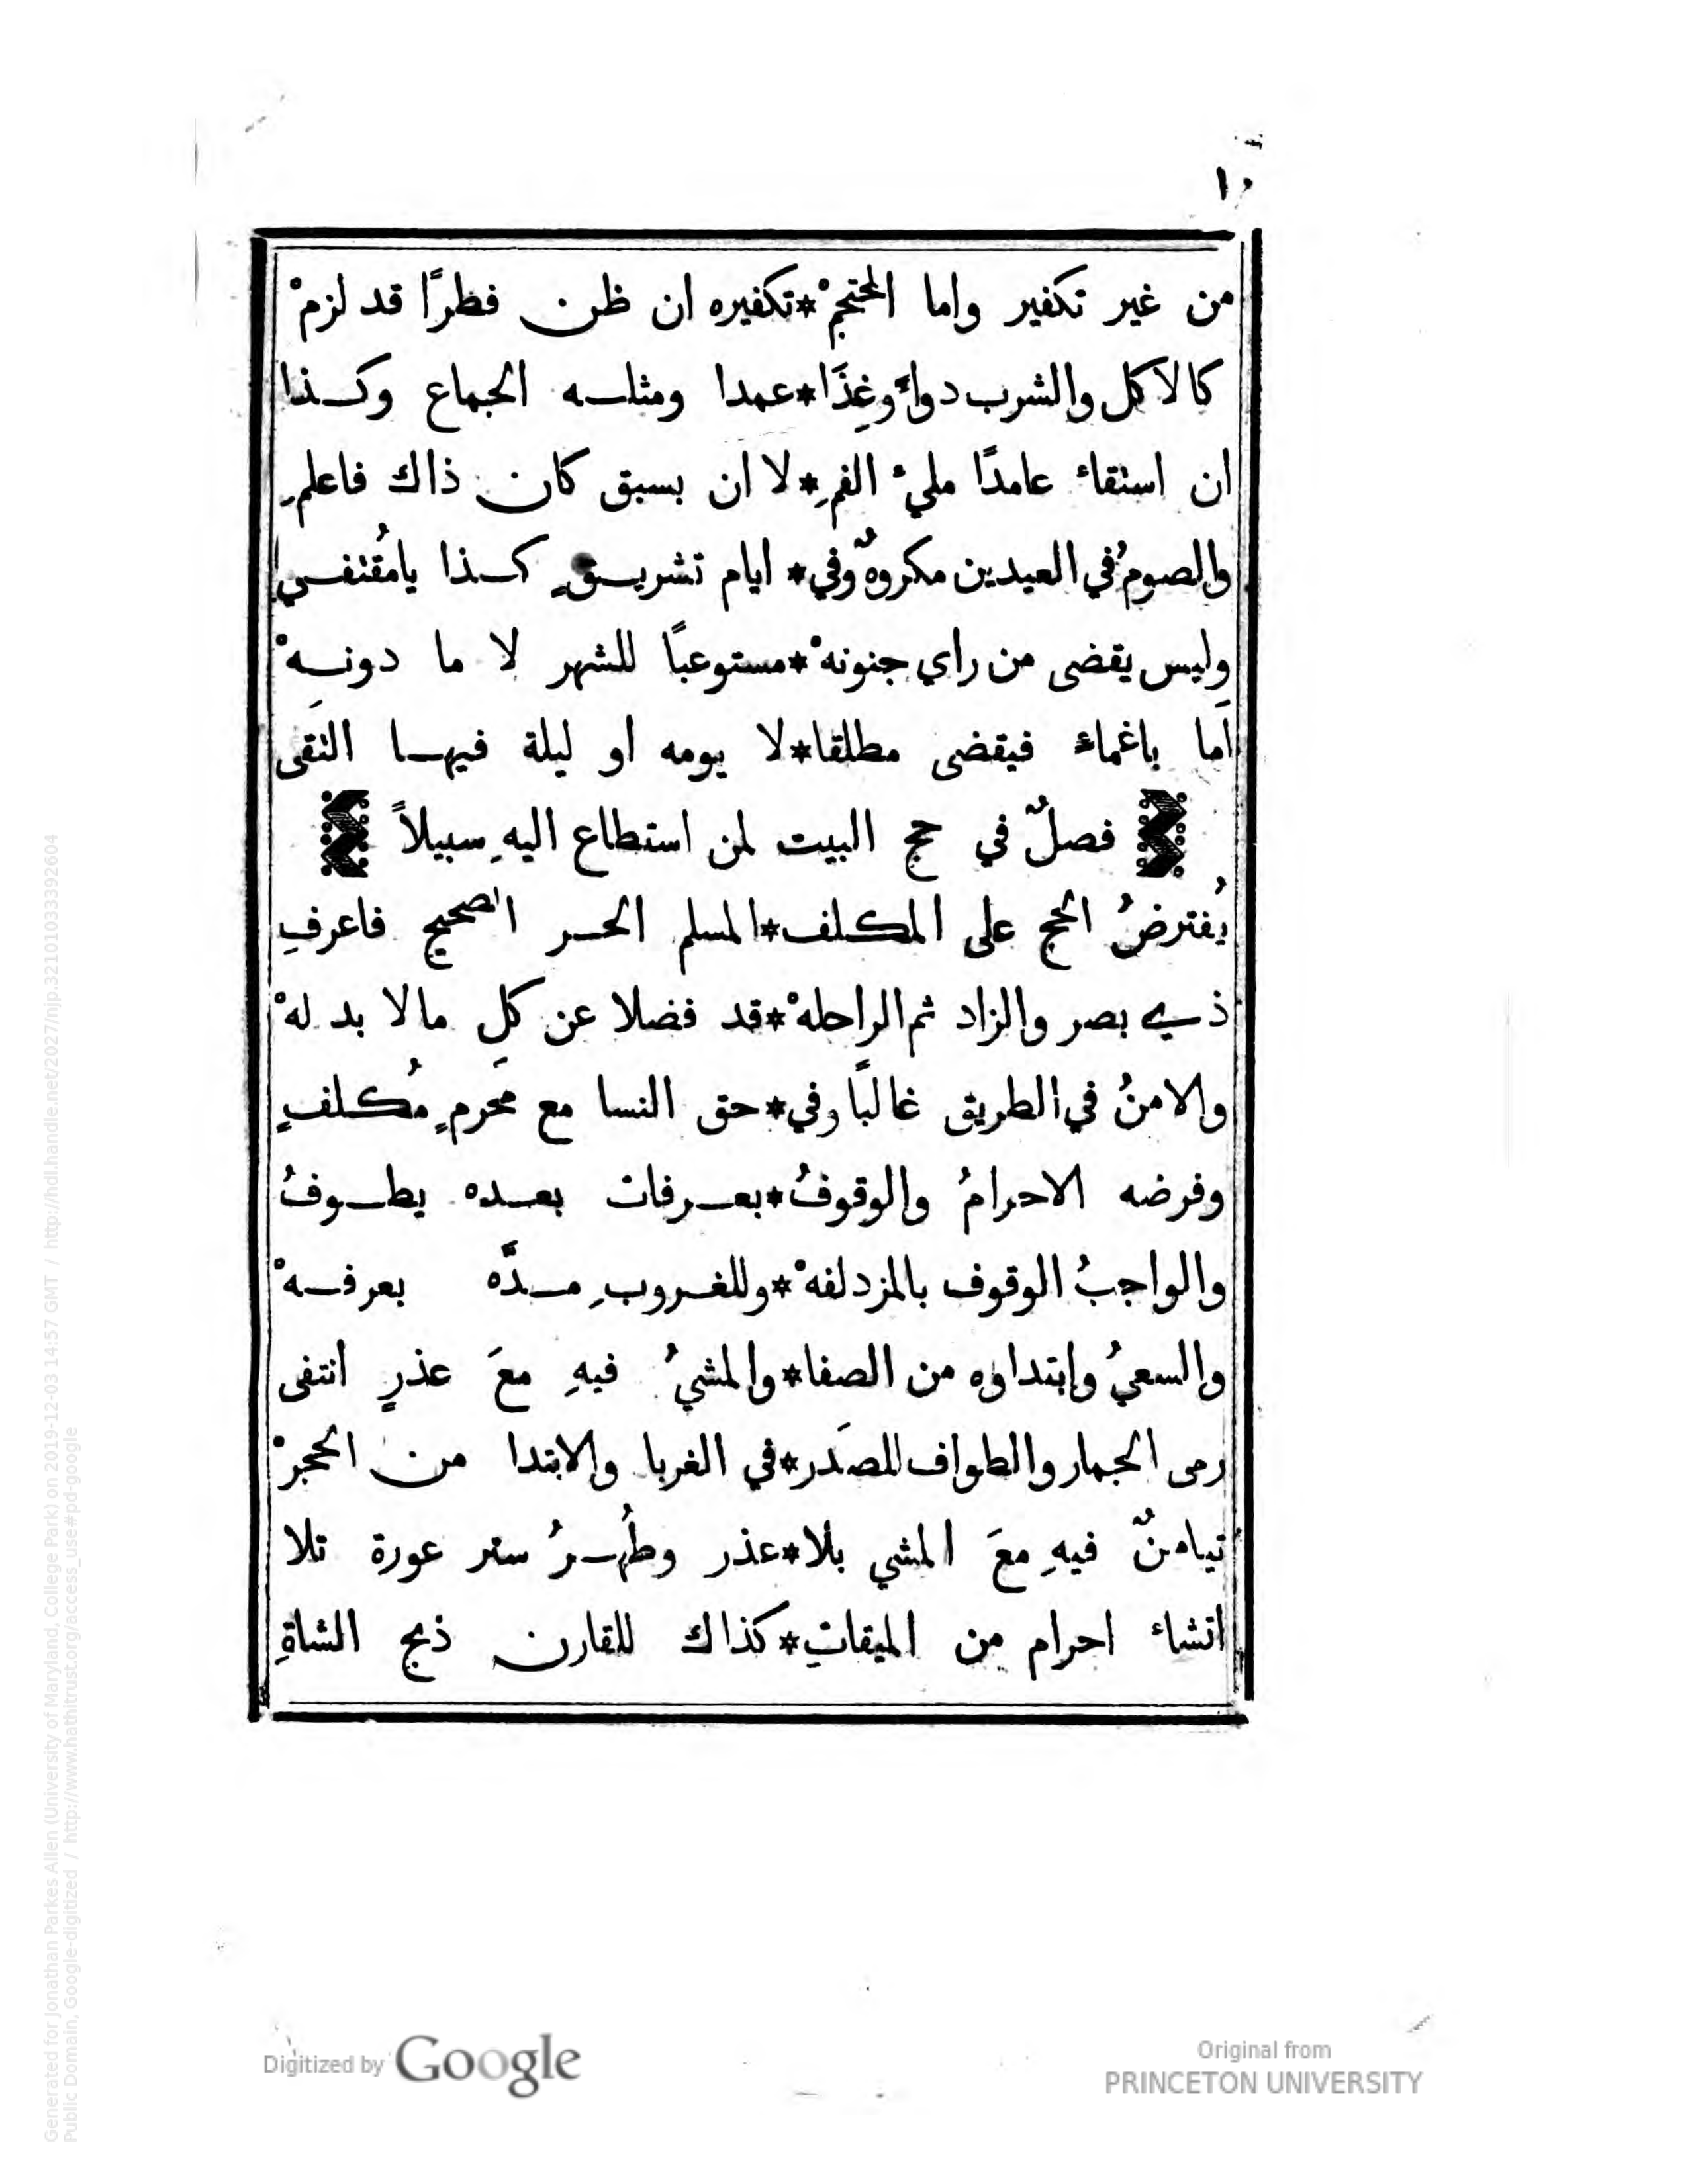 ١٠
من غير تكفير واما المحتجمْ*تكفيره ان ظن فطرًا قد لزمْ
كالاكل والشرب دواءً وغِذَا*عمدا ومثلـه الجماع وكـذا
ان استقاء عامدًا مليء الفمِ*لا ان بسبق كان ذاك فاعلمِ
والصومُ في العيدين مكروهٌ وفي*ايام تشريـقٍ كـذا يامُقتفـي
وليس يقضى من راي جنونهْ*مستوعبًا للشهر لا ما دونـهْ
اما باغماء فيقضى مطلقا*لا يومه او ليلة فيهـا التقى
فصلٌ في حج البيت لمن استطاع اليهِ سبيلاً
يُفترضُ الحج على المكلف*المسلم الحـر الصحيح فاعرفِ
ذي بصر والزاد ثم الراحلهْ*قد فضلا عن كلِ مالا بد لهْ
والامنُ في الطريق غالبًا وفي*حق النسا مع مَحرمٍ مُكلفٍ
وفرضه الاحرامُ والوقوفُ*بعـرفات بعـده يطـوفُ
والواجبُ الوقوف بالمزدلفهْ*وللغـروبِ مـدَّه بعرفـهْ
والسعيُ وابتداوه من الصفا*والمشيُ فيهِ معَ عذرٍ انتفى
رمى الجمار والطواف للصَدر*في الغربا والابتدا من الحجرْ
تيامنٌ فيهِ معَ المشي بلا*عذر وطُهـرُ ستر عورة تلا
انشاء احرام من الميقاتِ*كذاك للقارن ذبح الشاةِ
Digitized by Google
Original from
PRINCETON UNIVERSITY
Generated for Jonathan Parkes Allen (University of Maryland, College Park) on 2019-12-03 14:57 GMT / http://hdl.handle.net/2027/njp.32101033392604
Public Domain, Google-digitized / http://www.hathitrust.org/access_use#pd-google